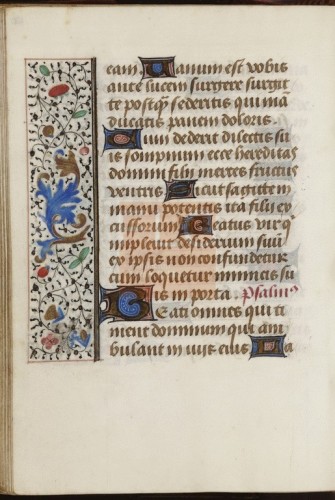 eam Uanum est vobis
ante lucem surgere surgi
te postq̃ sederitis qui mā
ducatis panem doloris.
Cum dederit dilectis su
is sompnum ecce hereditas
domini filii merces fructus
ventris Sicut sagitte in
manu potentis ita filii ex
cussorum Beatus vir q̃
implevit desiderium suū
ex ipsis non confundetur
cum loquetur inimicis su
is in porta. psalmꝰ
Beati omnes qui ti
ment dominum qui am
bulant in viis eius La